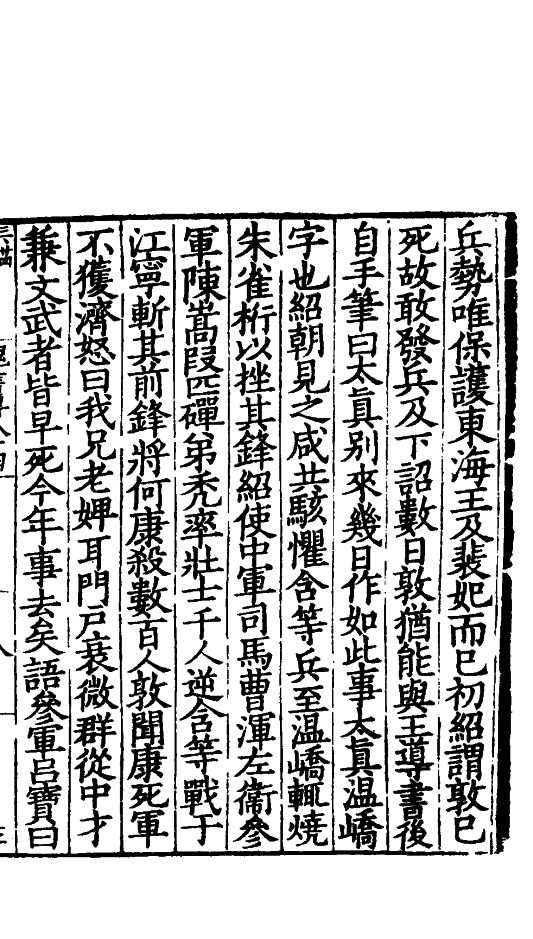 兵勢唯保護東海王及裴妃而已初紹謂敦已
死故敢發兵及下詔數日敦猶能與王導書後
自手筆曰太眞别來幾日作如此事太眞温嶠
字也紹朝見之咸共駭懼含等兵至温嶠輒燒
朱雀桁以挫其鋒紹使中軍司馬曹渾左衞參
軍陳嵩段匹磾弟秃率壯士千人逆含等戰于
江寧斬其前鋒將何康殺數百人敦聞康死軍
不獲濟怒曰我兄老婢耳門户衰微群從中才
兼文武者皆早死今年事去矣語參軍吕寶曰